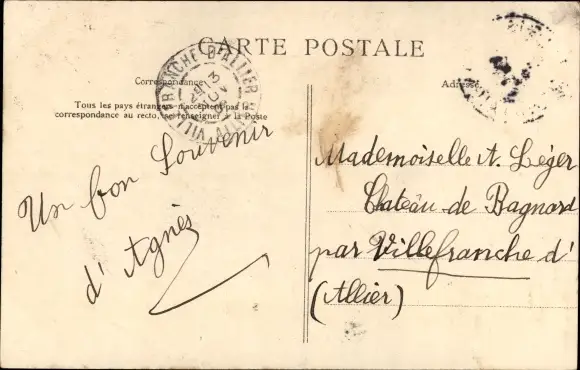 CARTE POSTALE
Correspondance
Adresse
Tous les pays étrangers n'acceptent pas la
correspondance au recto, se renseigner à la Poste
VILLEFRANCHE D'ALLIER
Un bon Souvenir
d'Agnès
Mademoiselle A. Léger
Chateau de Bagnard
par Villefranche d'
(Allier)